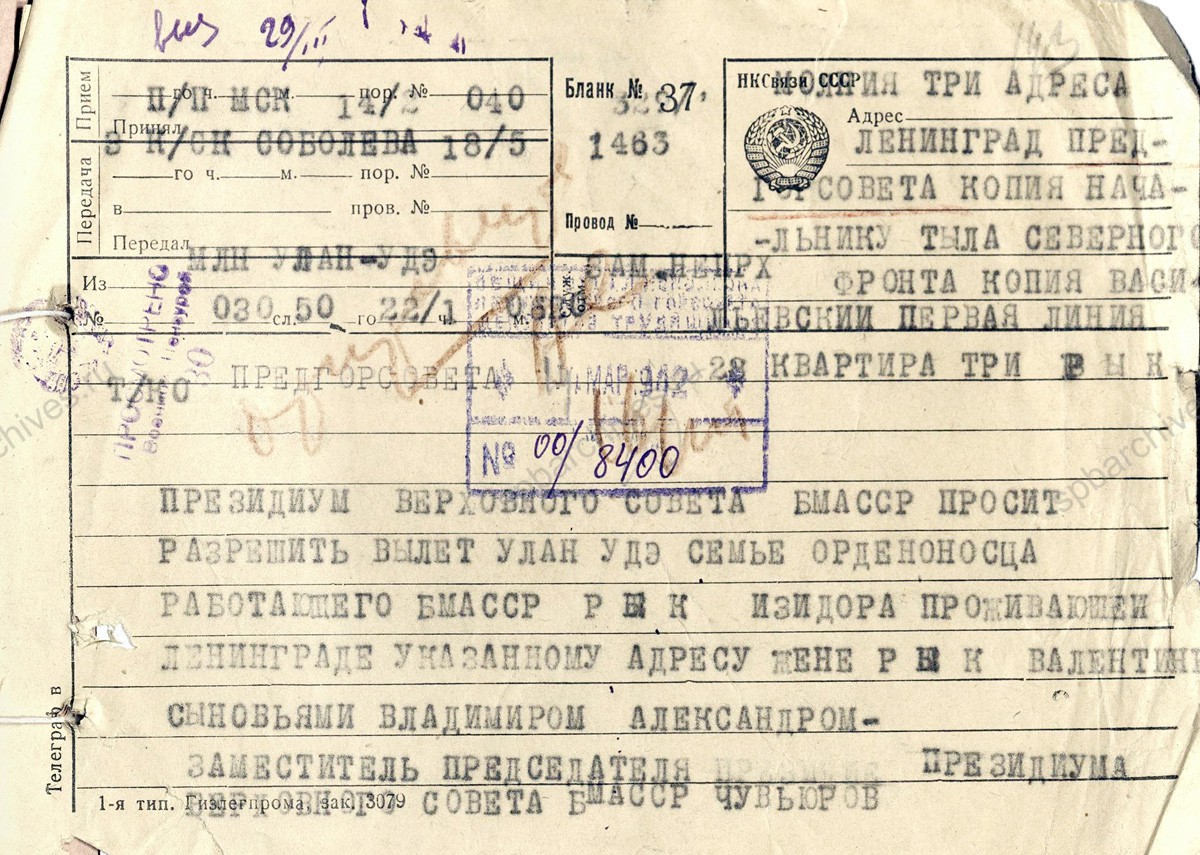 29/III
143
Прием
го ч. м. пор. №
П/П МСК 14/2 040
Принял
3 К/СК СОБОЛЕВА 18/5
Передача
го ч. м. пор. №
в пров. №
Передал
МЛН УЛАН-УДЭ
Из
№ 030 сл. 50 го 22/1 ч. м.
Бланк № 37
1463
Провод №
НКСвязи СССР
МОЛНИЯ ТРИ АДРЕСА
Адрес
ЛЕНИНГРАД ПРЕД-
ГОРСОВЕТА КОПИЯ НАЧА-
-ЛЬНИКУ ТЫЛА СЕВЕРНОГО
ФРОНТА КОПИЯ ВАСИ-
ЛЬЕВСКИЙ ПЕРВАЯ ЛИНИЯ
28 КВАРТИРА ТРИ РЫК
Т/НО ПРЕДГОРСОВЕТА
ПРОСМОТРЕНО
Военной Цензурой
30
МАР 1942
№ 00/8400
ПРЕЗИДИУМ ВЕРХОВНОГО СОВЕТА БМАССР ПРОСИТ
РАЗРЕШИТЬ ВЫЛЕТ УЛАН УДЭ СЕМЬЕ ОРДЕНОНОСЦА
РАБОТАЮШЕГО БМАССР РЫК ИЗИДОРА ПРОЖИВАЮШЕЙ
ЛЕНИНГРАДЕ УКАЗАННОМУ АДРЕСУ ЖЕНЕ РЫК ВАЛЕНТИНЕ
СЫНОВЬЯМИ ВЛАДИМИРОМ АЛЕКСАНДРОМ-
ЗАМЕСТИТЕЛЬ ПРЕДСЕДАТЕЛЯ ПРЕЗИДИУМА
ВЕРХОВНОГО СОВЕТА БМАССР ЧУВЬЮРОВ
1-я тип. Гизлегпрома, зак. 3079
Телеграф в
spbarchives.ru